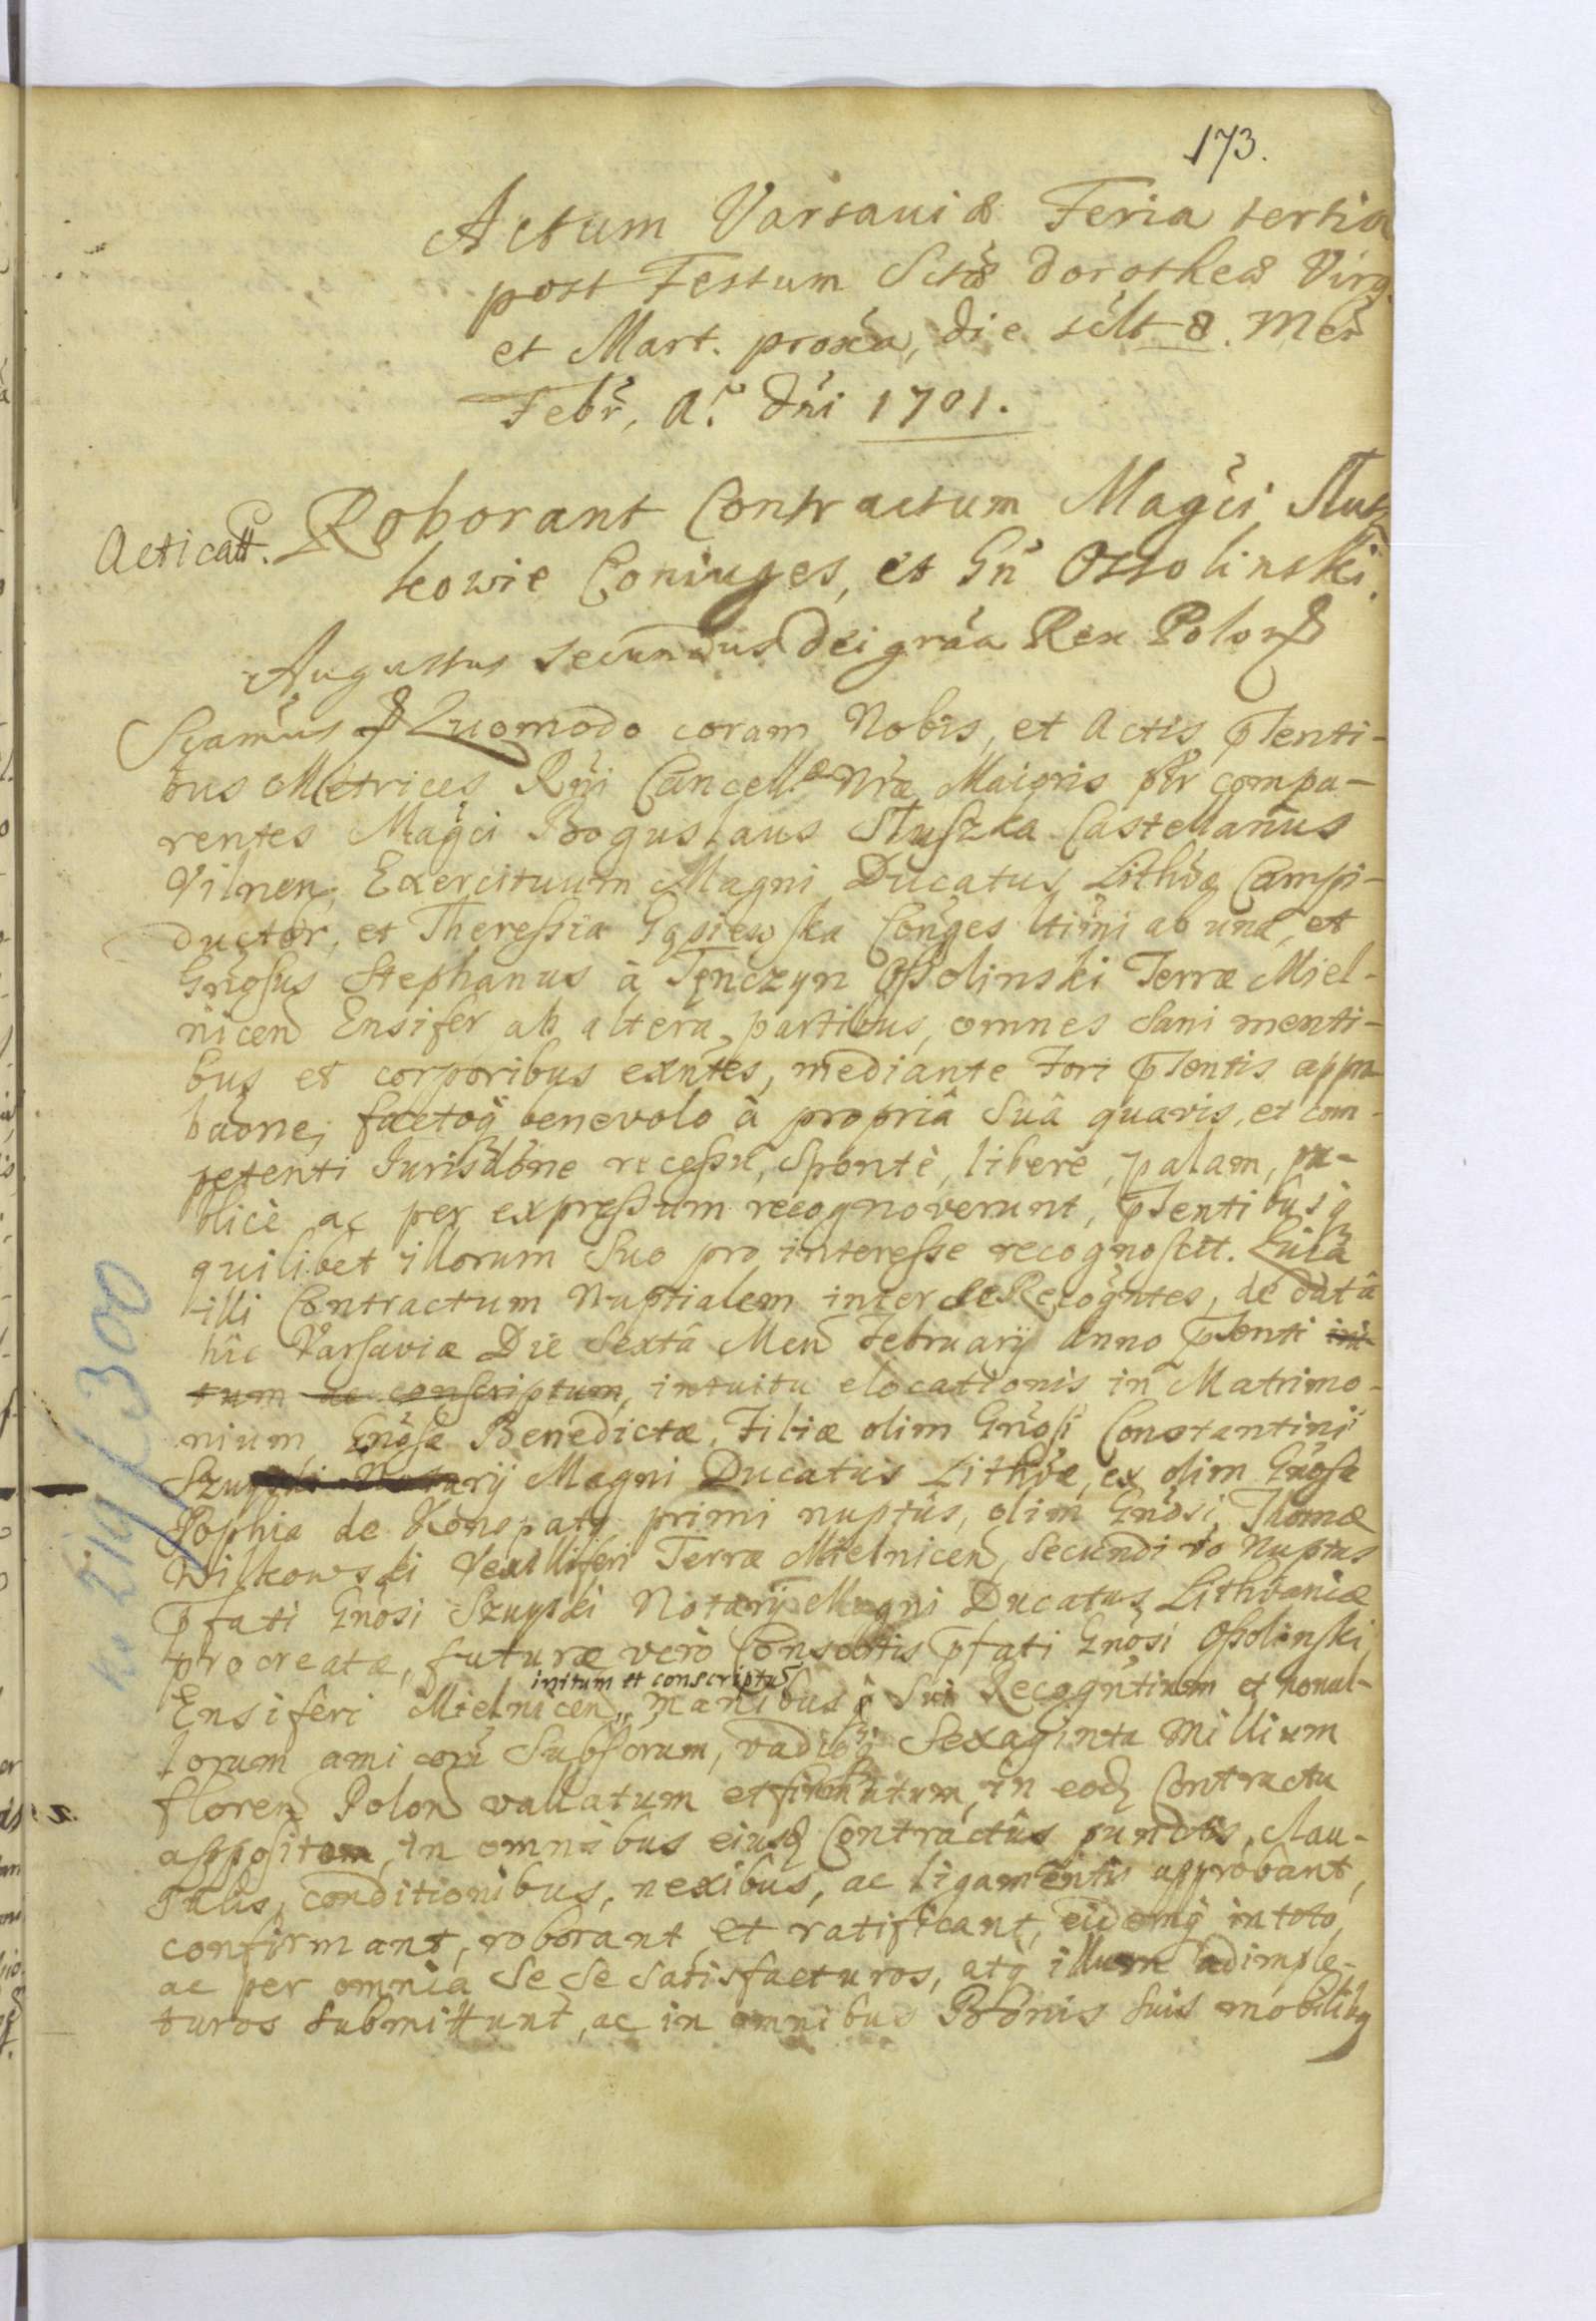 173.
Actum Varsaviæ Feria tertia
post Festum Sctæ Dorotheæ Virg.
et Mart. proxa, die sclt 8. Men
Febr, A.º Dni 1701.
Acticatt. Roborant Contractum Magci Slusz
kowie Coniuges, et Gn Ossolinski.
Augustus secundus Dei graa Rex Polo
Sciamus Quomodo coram Nobis, et Actis pnti-
bus Metrices Rni Cancellæ Nræ Maioris plr compa-
rentes Magci Boguslaus Sluszka Castellanus
Vilnen, Exercituum Magni Ducatus Lithvæ Campi-
ductor, et Theressia Gąsiewska Conges ltimi ab una, et
Gnosus Stephanus à Tęnczyn Ossolinski Terræ Miel-
nicen Ensifer ab altera, partibus, omnes Sani menti-
bus et corporibus exntes, mediante Fori pntis appro
baone, factoq benevolo à propriâ Suâ quavis, et com-
petenti Jurisdone recessu, sponte, libere, palam, pu-
blicè ac per expressum recognoverunt, pntibusq
quilibet illorum Suo pro interesse recognoscit. Quia
illi Contractum Nuptialem inter se Recogntes, de datâ
hîc Varsaviæ Die Sextâ Men February Anno pnti ini-
tum ac conscriptum, intuitu elocationis in Matrimo-
nium Gnosæ Benedictæ, Filiæ olim Gnosi Constantini
Szuyski Notarij Magni Ducatus Lithvæ, ex olim Gnosa
Sophia de Konopaty primi nuptûs, olim Gnosi Thomæ
Wilkowski Vexilliferi Terræ Mielnicen, Secundi vo Nuptus
pfati Gnosi Szuyski Notarij Magni Ducatus Lithvaniæ
procreatæ, futuræ verò Consortis pfati Gnosi Ossolinski
initum et conscriptum
Ensiferi Mielnicen, manibusq Sui Recogntium et nonul-
lorum amicorũ Subscrum, vadioq Sexaginta Millium
floren Polon vallatum et firmatum, in eod Contractu
apposito, in omnibus eiusd Contractûs punctis, clau-
sulis, conditionibus, nexibus, ac ligamentis approbant,
confirmant, roborant et ratificant, eidemq in toto
ac per omnia Se Se Satisfacturos, atq illum adimple-
turos submittunt, ac in omnibus Bonis suis mobilibq